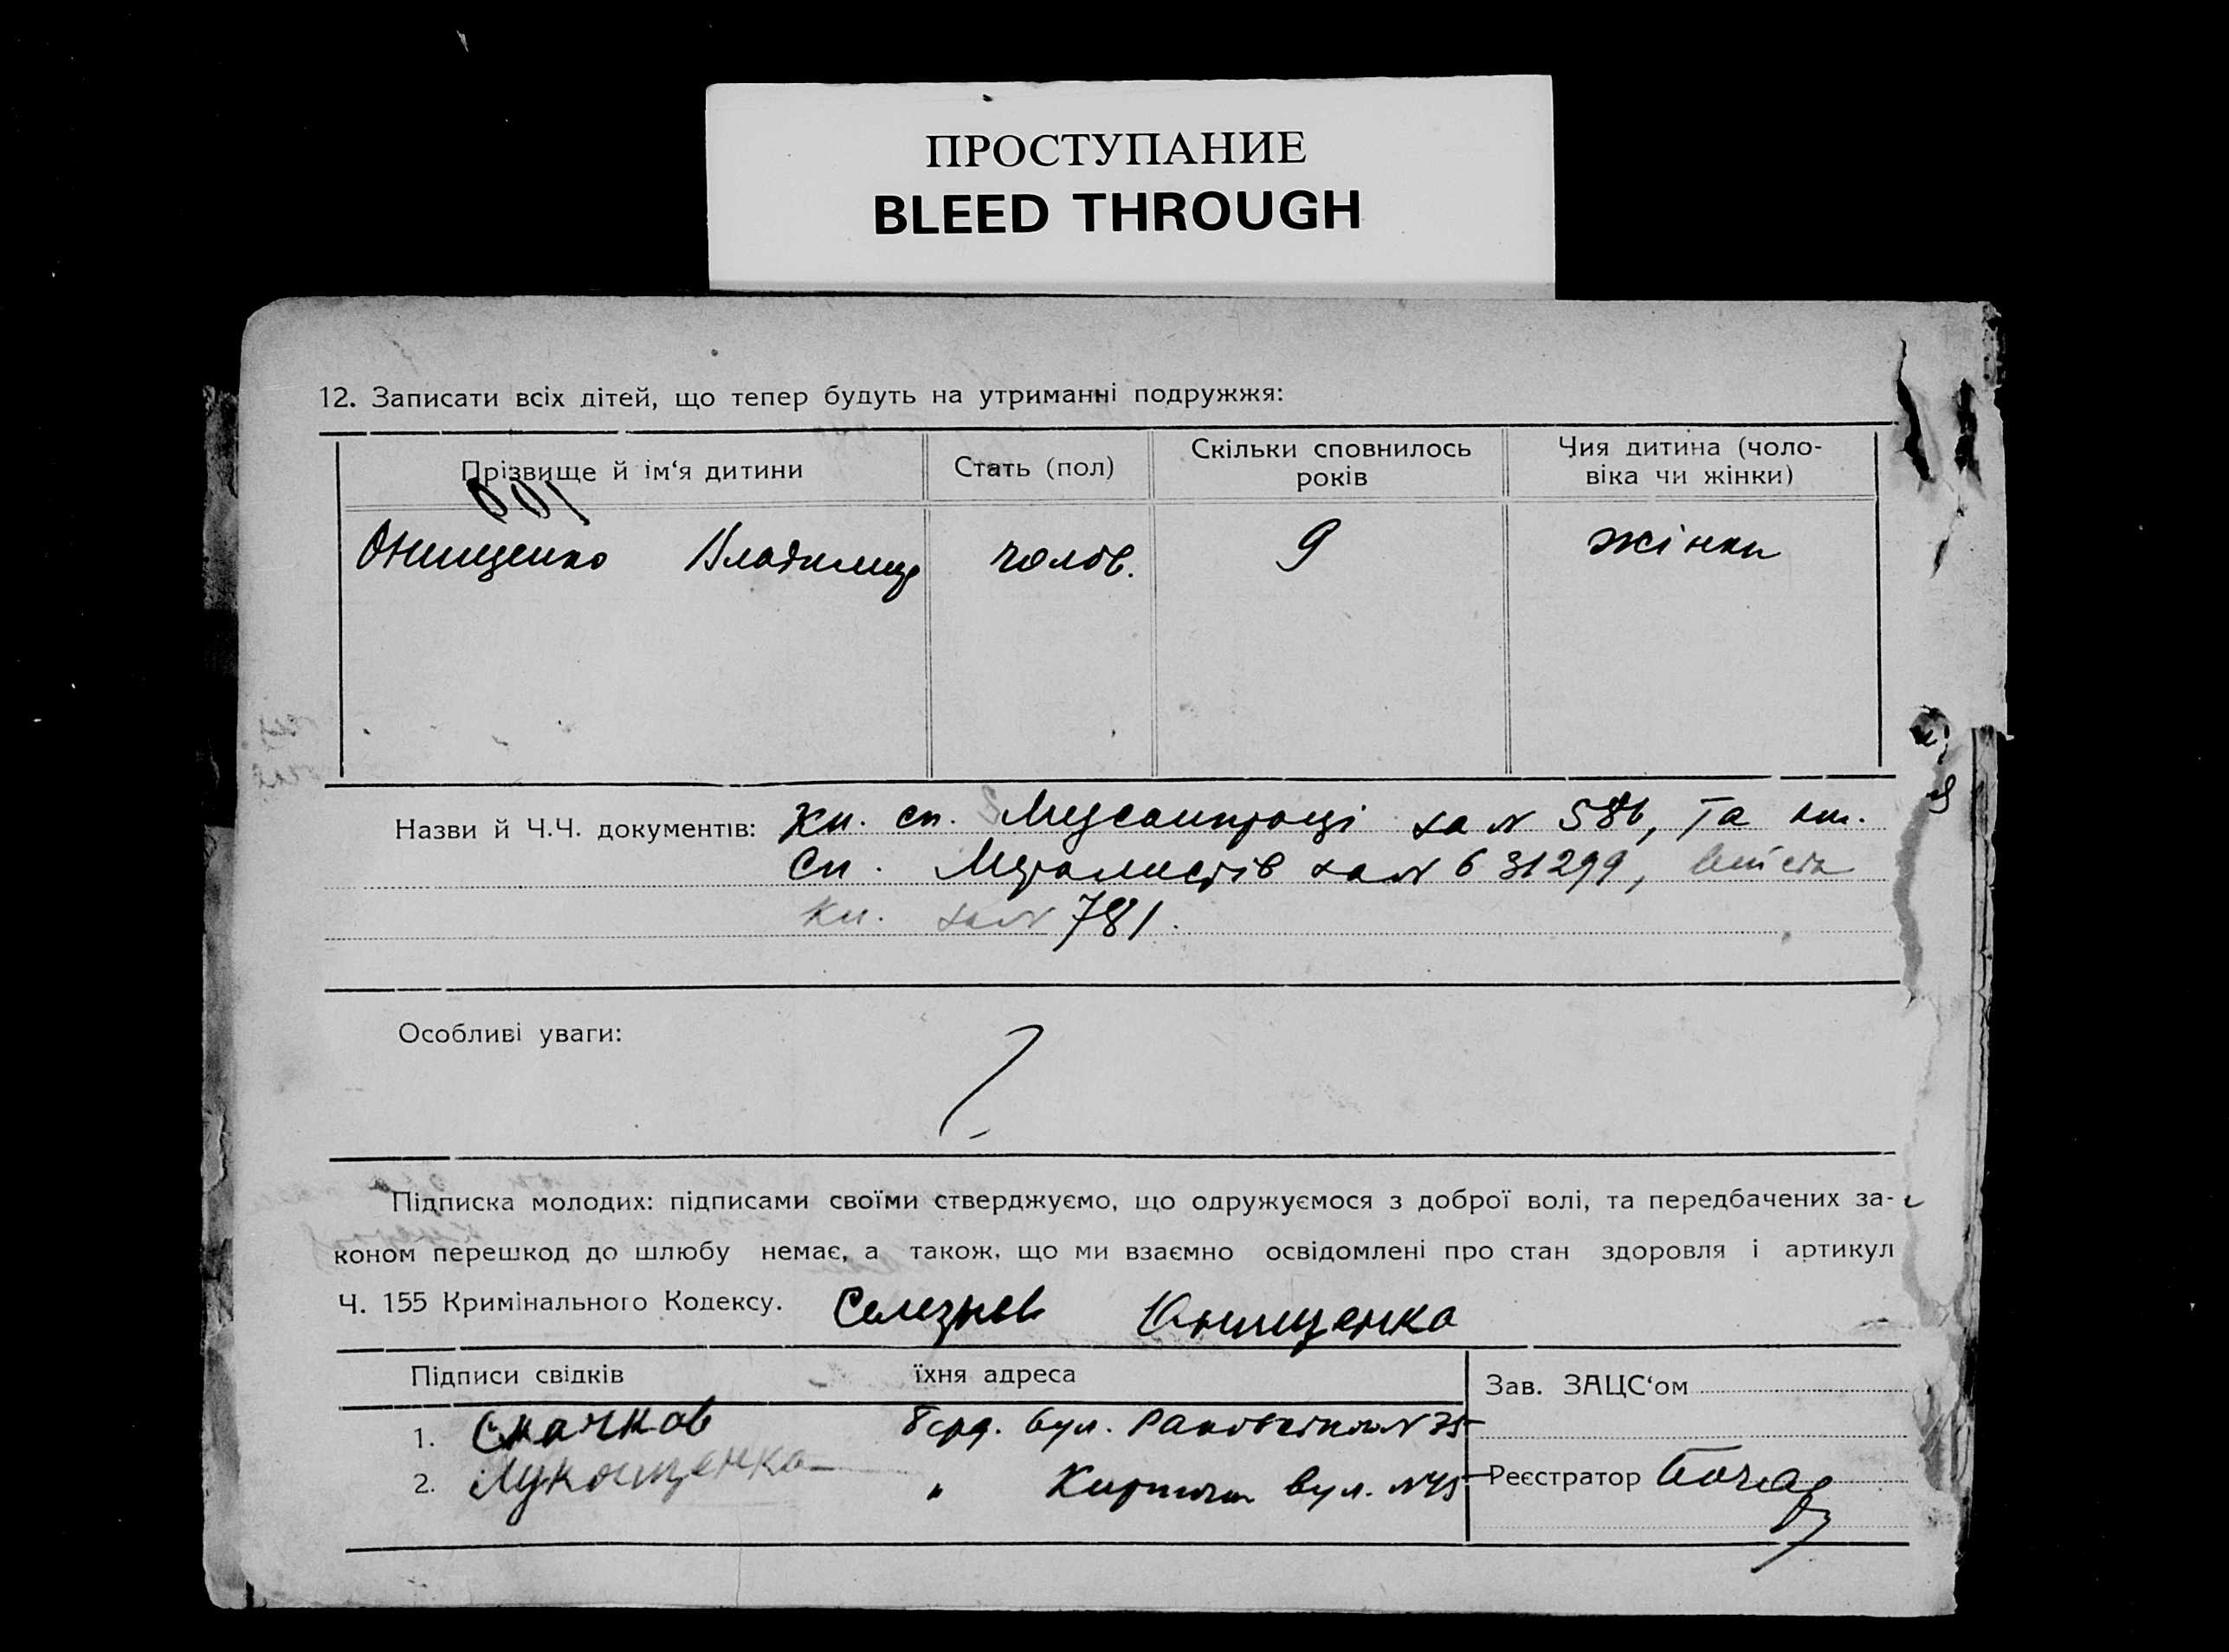 ПРОСТУПАНИЕ
BLEED THROUGH
12. Записати всіх дітей, що тепер будуть на утриманні подружжя:
Прізвище й ім‘я дитини Стать (пол) Скільки сповнилось років Чия дитина (чоловіка чи жінки)
Онищенко Владимир чолов. 9 жінки
Назви й Ч.Ч. документів: Кн. сп. Медсанпраці за № 586, Та кн.
Сп. Металистів за № 631299,
кн. за № 781.
Особливі уваги:
Підписка молодих: підписами своїми стверджуємо, що одружуємося з доброї волі, та передбачених за-
коном перешкод до шлюбу немає, а також, що ми взаємно освідомлені про стан здоровля і артикул
Ч. 155 Кримінального Кодексу. Селезнев Онищенко
Підписи свідків їхня адреса Зав. ЗАЦС‘ом
1. Скачков Берд. вул. №75
2. Лукащенко " вул. №45 Реєстратор